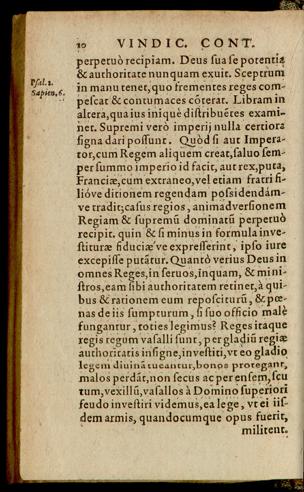 20 VINDIC. CONT.
perpetuò recipiam. Deus sua se potentia
& authoritate nunquam exuit. Sceptrum
Psal. 2.
Sapien. 6.
in manu tenet, quo frementes reges com-
pescat & contumaces cōterat. Libram in
altera, qua ius iniquè distribuētes exami-
net. Supremi verò imperij nulla certiora
signa dari possunt. Quòd si aut Impera-
tor, cum Regem aliquem creat, saluo sem-
per summo imperio id facit, aut rex, puta,
Franciæ, cum extraneo, vel etiam fratri fi-
lióve ditionem regendam possidendám-
ve tradit; casus regios, animaduersionem
Regiam & supremū dominatū perpetuò
recipit. quin & si minus in formula inve-
stituræ fiduciæ've expresserint, ipso iure
excepisse putātur. Quantò verius Deus in
omnes Reges, in seruos, inquam, & mini-
stros, eam sibi authoritatem retinet, à qui-
bus & rationem eum reposciturū, & pœ-
nas de iis sumpturum, si suo officio malè
fungantur, toties legimus? Reges itaque
regis regum vasalli sunt, per gladiū regiæ
authoritatis insigne, inuestiti, vt eo gladio
legem diuinā tueantur, bonos protegant,
malos perdāt, non secus ac per ensem, scu
tum, vexillū, vasallos à Domino superiori
feudo inuestiri videmus, ea lege, vt ei iis-
dem armis, quandocumque opus fuerit,
militent.